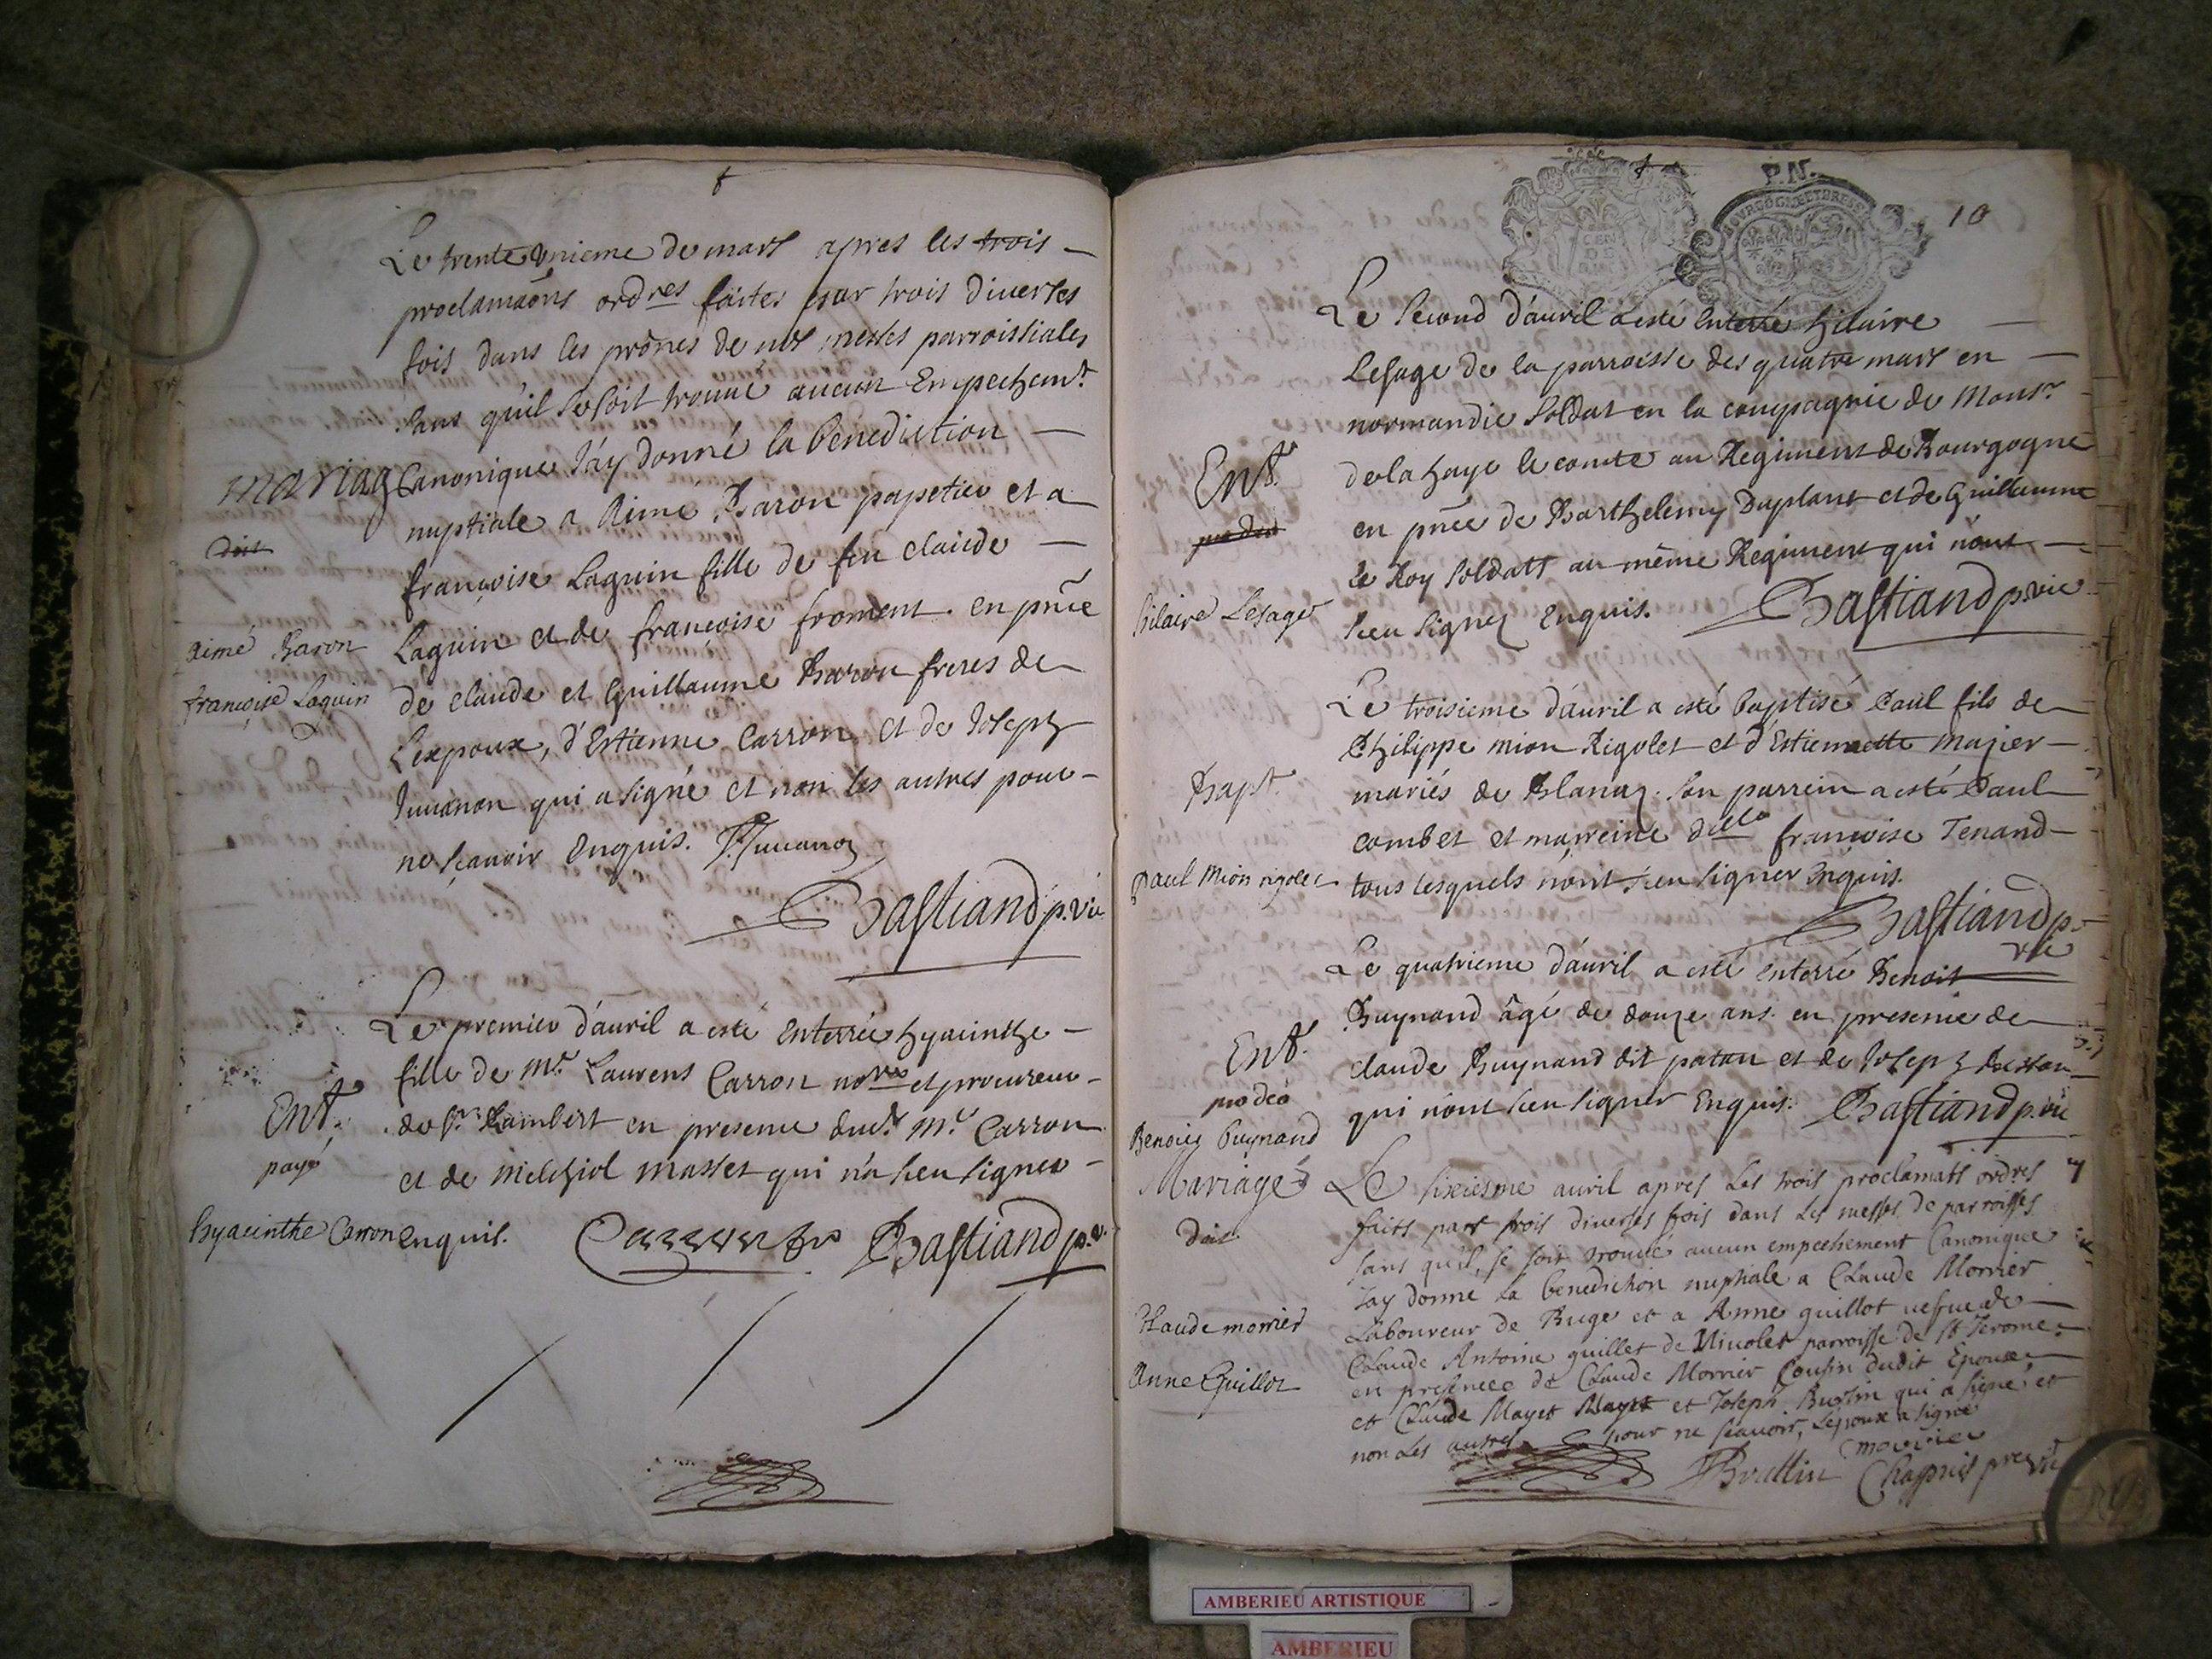 Le trente unieme de mars apres les trois
proclamaõns ordres faites par trois diverses
fois dans les prônes de nos messes parroissiales
sans qu'il se soit trouué aucun Empechemt
mariag
Canonique J'ay donné la benediction
nuptiale a Aimé Baron papetier et a
doit
françoise Laguin fille de feu claude
Laguin et de françoise froment. en pñce
Aimé Baron
de claude et Guillaume Baron freres de
françoise Laguin
L'expoux, d'Estienne Carron et de Joseph
Juuanon qui a signé et non les autres pour
ne sçauoir Enquis. J Juuanon
Bastiand p. vic
Le premier d'auril a esté Enterrée hyacinthe
fille de Mr. Laurens Carron nore et procureur
Ent.
de St. Rambert en presence dud. Mr. Carron
payé
et de Melchiol Masset qui n'a sceu signer
hyacinthe Carron
enquis. Bastiand p. v.
P.N.
BOURGOGNE ET BRESSE
10
Le second d'auril a esté Enterré hilaire
Lesage de la parroisse des quatre mars en
normandie soldat en la compagnie de Monsr
Ent.
de la haye le comte au Regiment de Bourgogne
pro deo
en pñce de Barthelemy Duplant et de Guillaume
Le Roy soldats au même Regiment qui n'ont
hilaire Lesage
sceu signer Enquis. Bastiand p. vic
Le troisieme d'auril a esté baptisé Paul fils de
Philippe mion Rigolet et d'Estiennette Mazier
Bapt.
mariés de Blanaz. son parrein a esté Paul
combet et marreine dlle françoise Tenand
Paul Mion rigolet
tous lesquels n'ont sceu signer Enquis.
Bastiand p.
vic
Le quatrieme d'auril a esté enterré Benoit
Buynand âgé de douze ans. en presence de
Ent.
claude Buynand dit patan et de Joseph
pro deo
qui n'ont sceu signer Enquis. Bastiand p. vic
Benoist Buynand
Mariage
Le sixiesme auril apres Les trois proclamats ordres
faits par trois diverses fois dans Les messes de parroisses
doit
sans qu'il se soit trouué aucun empechement Canonique
Jay donne La benediction nuptiale a Claude Morrier
Claude morrier
Laboureur de Buge et a Anne guillot uefue de
Claude Antoine guillet de Niuolet parroisse de St Jerome.
Anne Guillot
en presence de Claude Morrier Cousin dudit Epoux
et Claude Mayet Mayet et Joseph Burtin qui a signé et
non Les autres pour ne sçauoir, L'epoux a signé
morrier
Chapuis pre vic
AMBERIEU ARTISTIQUE
AMBERIEU